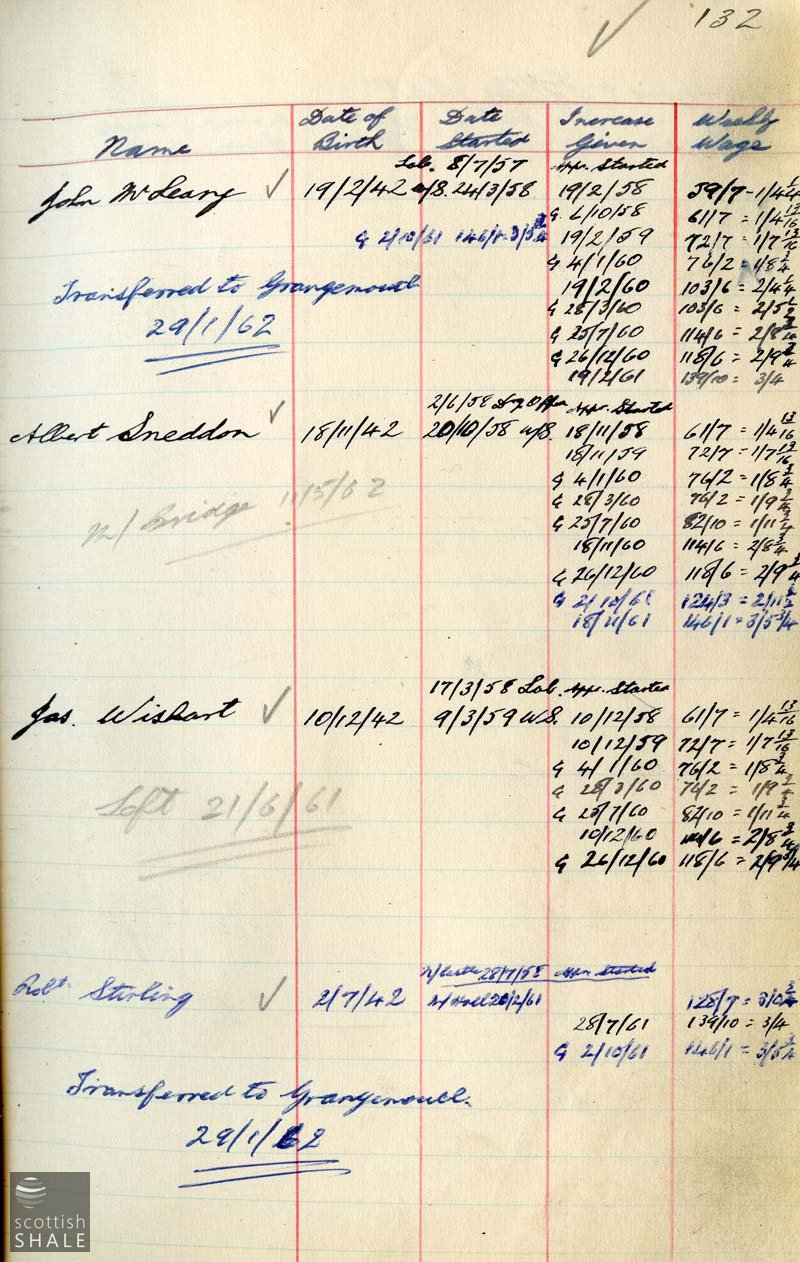 132
Date of Date Increase Weekly
Name Birth Started Given Wage
Lab. 8/7/57 App. Started
John McLeary 19/2/42 w/S. 24/3/58. 19/2/58 59/7 - 1/4 1/4
G 6/10/58 61/7 = 1/4 13/16
G 2/10/61 146/1 = 3/5 3/4 19/2/59 72/7 = 1/7 13/16
G 4/1/60 76/2 = 1/8 3/4
Transferred to Grangemouth 19/2/60 103/6 = 2/4 1/4
29/1/62 G 28/3/60 103/6 = 2/5 1/2
G 25/7/60 114/6 = 2/8 3/4
G 26/12/60 118/6 = 2/9 3/4
19/2/61 139/10 = 3/4
2/6/58 App. Started
Albert Sneddon 18/11/42 20/10/58 w/S. 18/11/58 61/7 = 1/4 13/16
18/11/59 72/7 = 1/7 13/16
G 4/1/60 76/2 = 1/8 3/4
M/Bridge 11/5/62 G 28/3/60 76/2 = 1/9 3/4
G 25/7/60 82/10 = 1/11 3/4
18/11/60 114/6 = 2/8 3/4
G 26/12/60 118/6 = 2/9 3/4
G 2/10/61 124/3 = 2/11 1/2
18/11/61 146/1 = 3/5 3/4
17/3/58 Lab. App. Started
Jas. Wishart 10/12/42 9/3/59 W.S. 10/12/58 61/7 = 1/4 13/16
10/12/59 72/7 = 1/7 13/16
G 4/1/60 76/2 = 1/8 3/4
Left 21/6/61 G 28/3/60 76/2 = 1/9 3/4
G 25/7/60 82/10 = 1/11 3/4
10/12/60 114/6 = 2/8 3/4
G 26/12/60 118/6 = 2/9 3/4
28/7/58 App. Started
Robt. Stirling 2/7/42 20/2/61 128/7 = 3/0 3/4
28/7/61 139/10 = 3/4
G 2/10/61 146/1 = 3/5 3/4
Transferred to Grangemouth.
29/1/62
scottish
SHALE